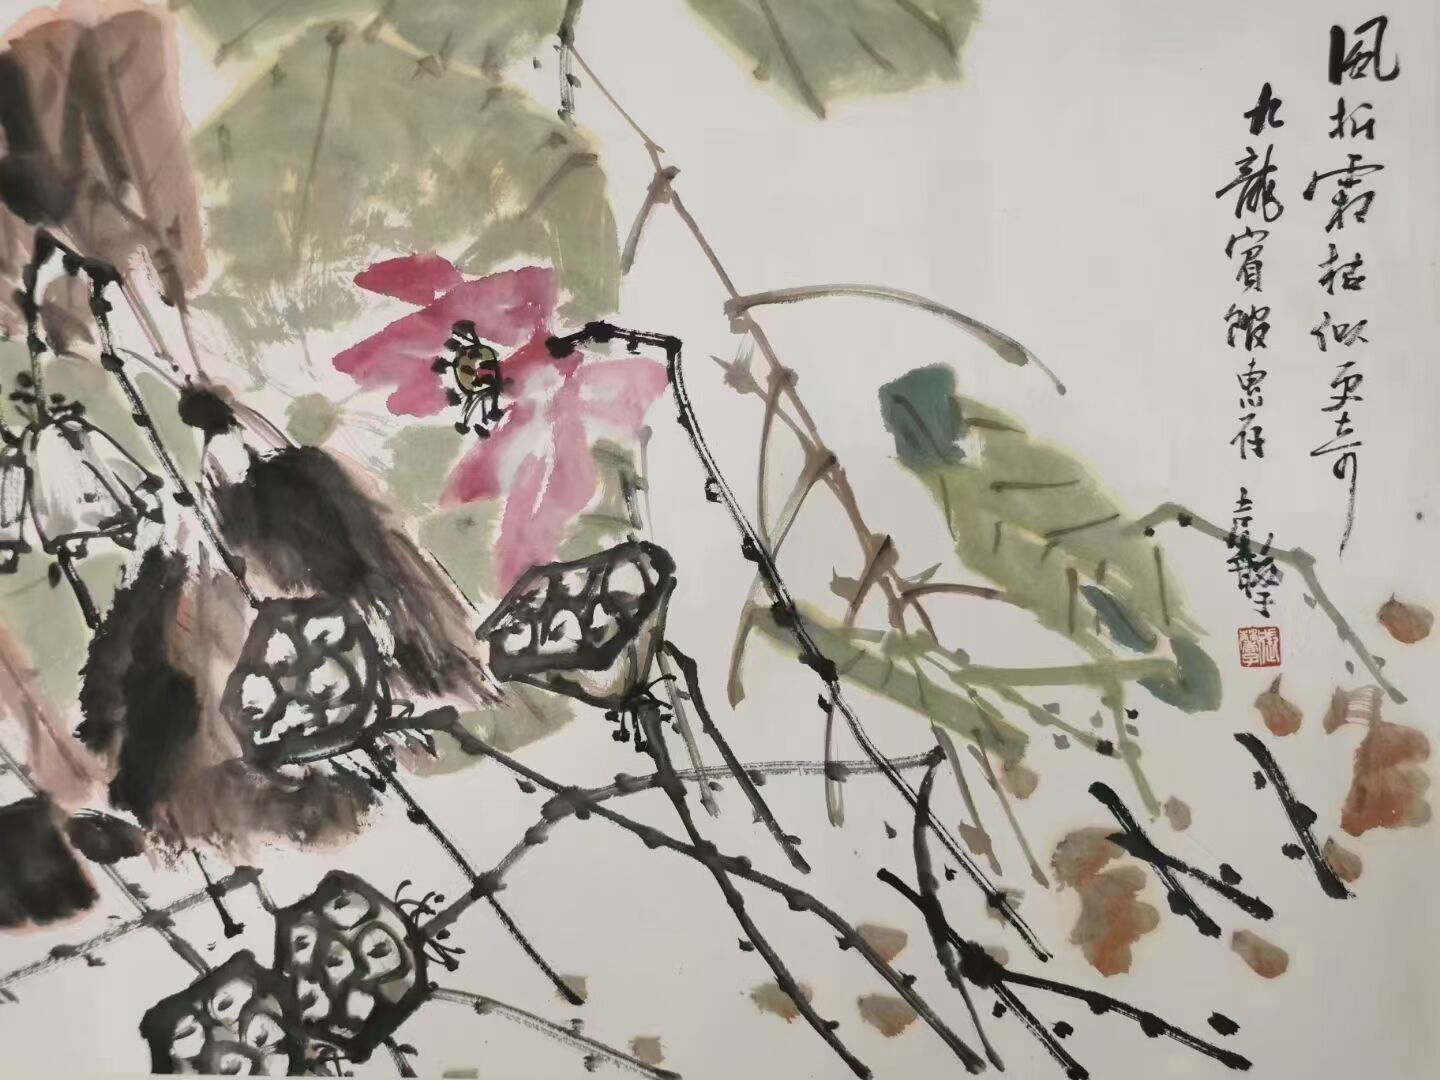 風折霜枯似更奇
九龍賓館惠存